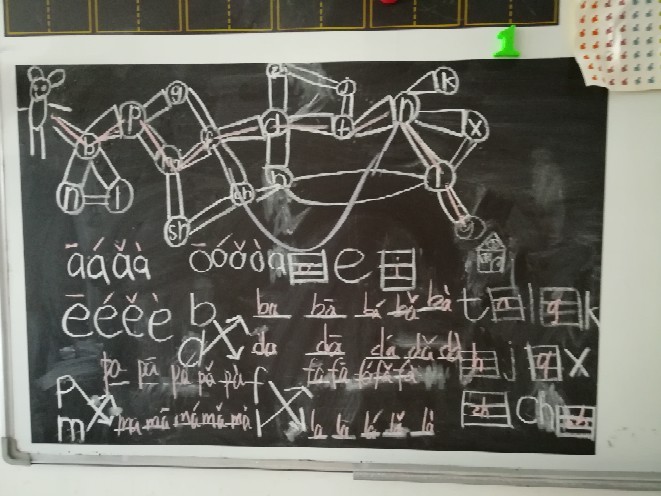 1
zh
g k
p p
b d t x
m
n l n t
sh
ā á ǎ à ō ó ǒ ò a e i
ē é ě è b ba bā bá bǎ bà t n l g k
d da dā dá dǎ dà h j q x
p pa pā pá pǎ pà f fā fá fǎ fà
m ma mā má mǎ mà l la lā lá lǎ là zh ch sh